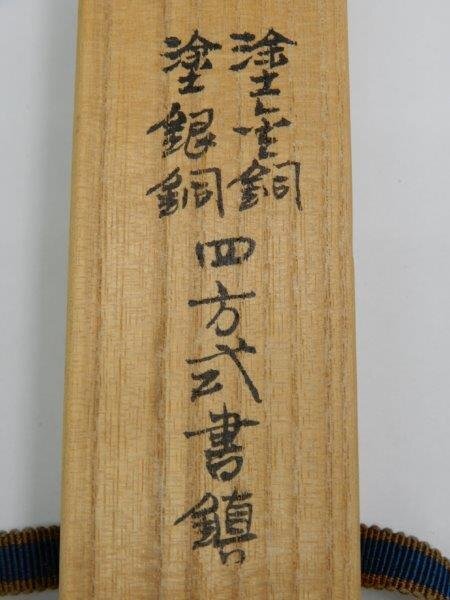 塗金銅
塗銀銅
四方式書鎮